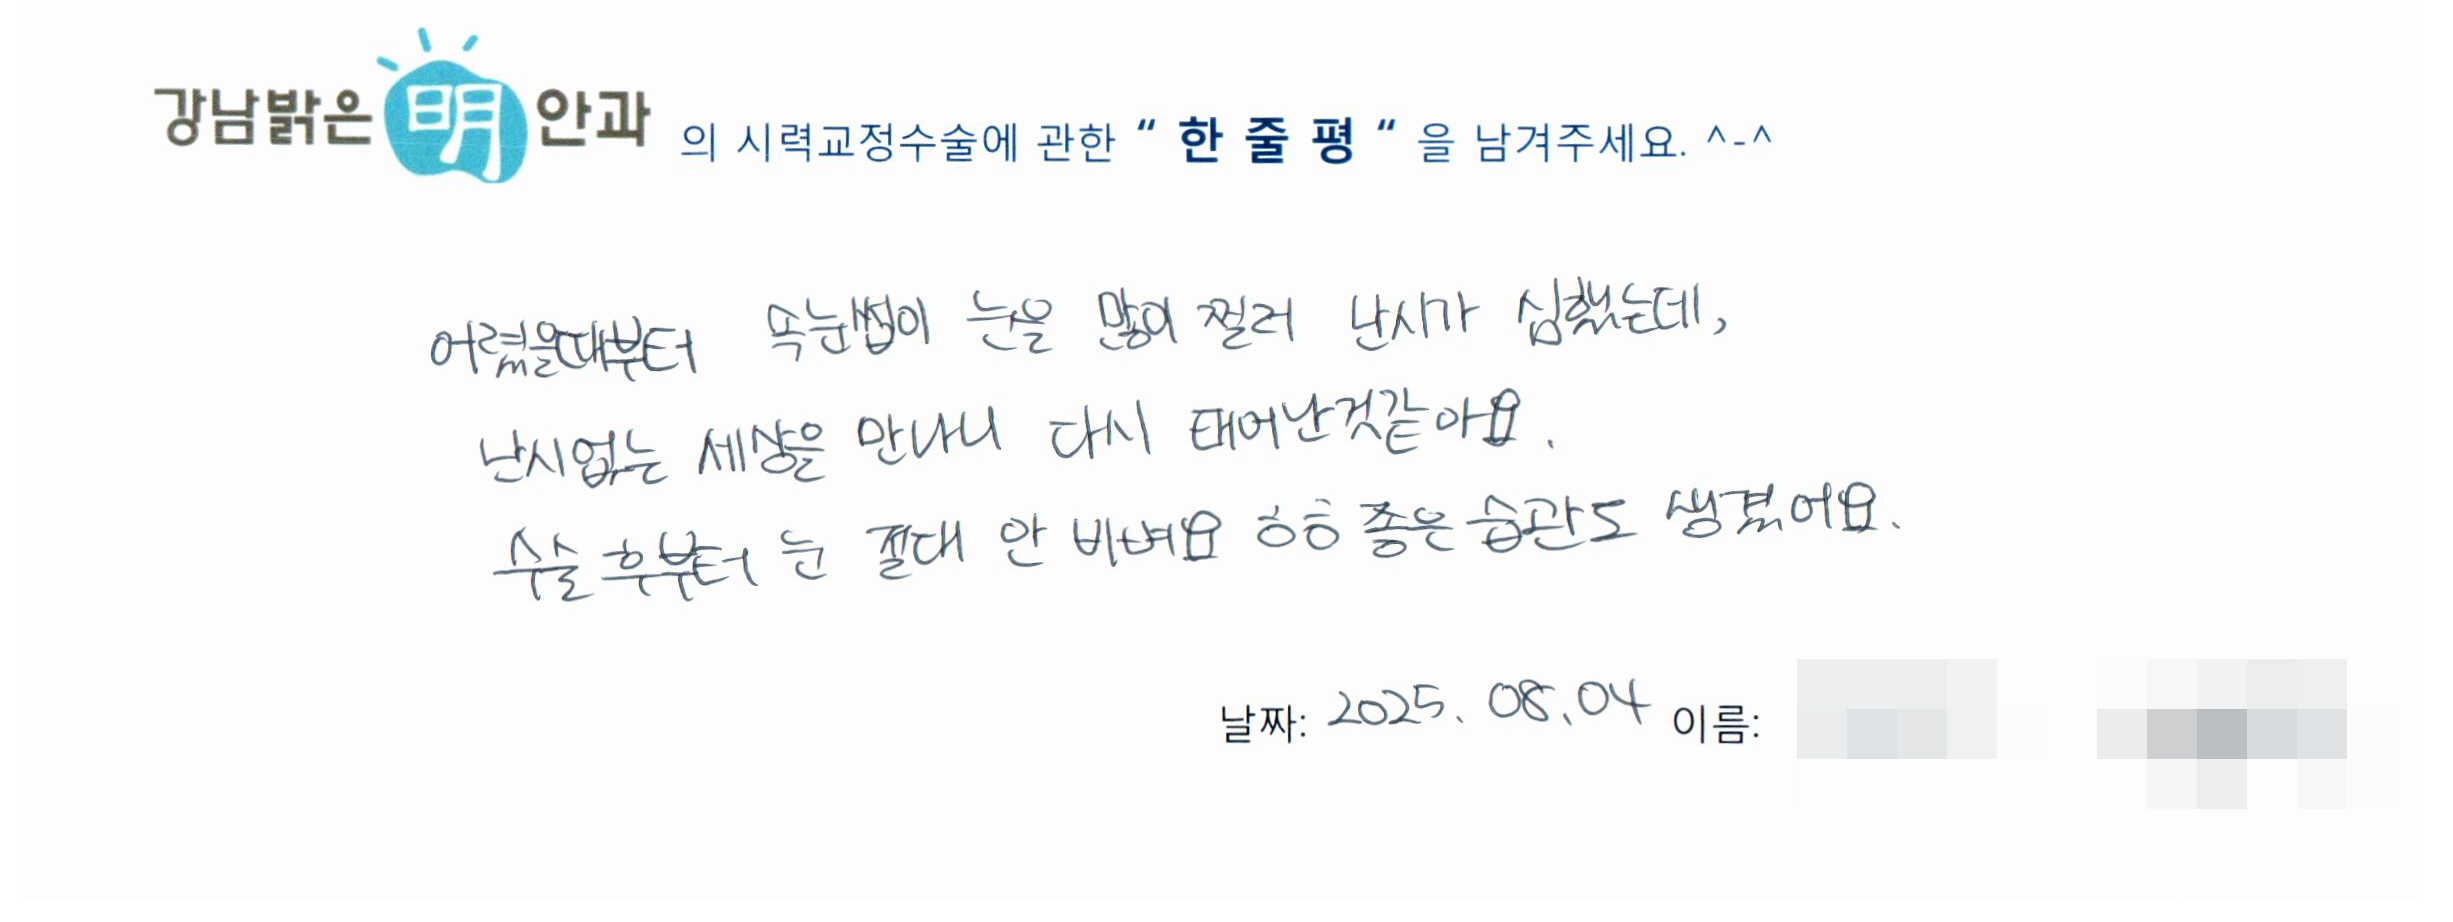 강남밝은 明 안과 의 시력교정수술에 관한 “ 한 줄 평 “ 을 남겨주세요. ^-^
어렸을때부터 속눈썹이 눈을 많이 찔러 난시가 심했는데,
난시없는 세상을 만나니 다시 태어난것같아요.
수술 후부터 눈 절대 안 비벼요 ㅎㅎ 좋은 습관도 생겼어요.
날짜: 2025. 08. 04 이름: